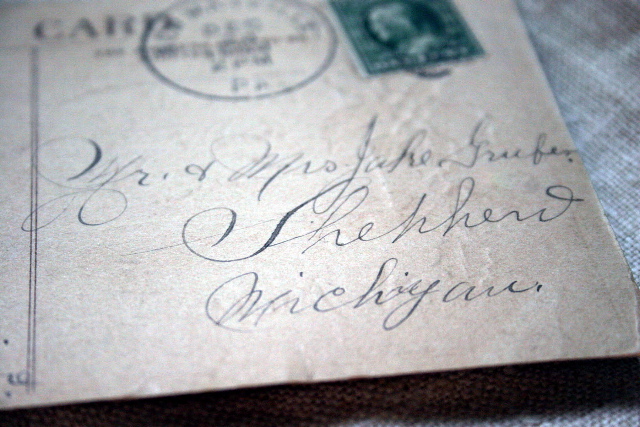 CARD
DEC
PM
Pa.
Mr. & Mrs Jake Gruber.
Shepherd
Michigan.